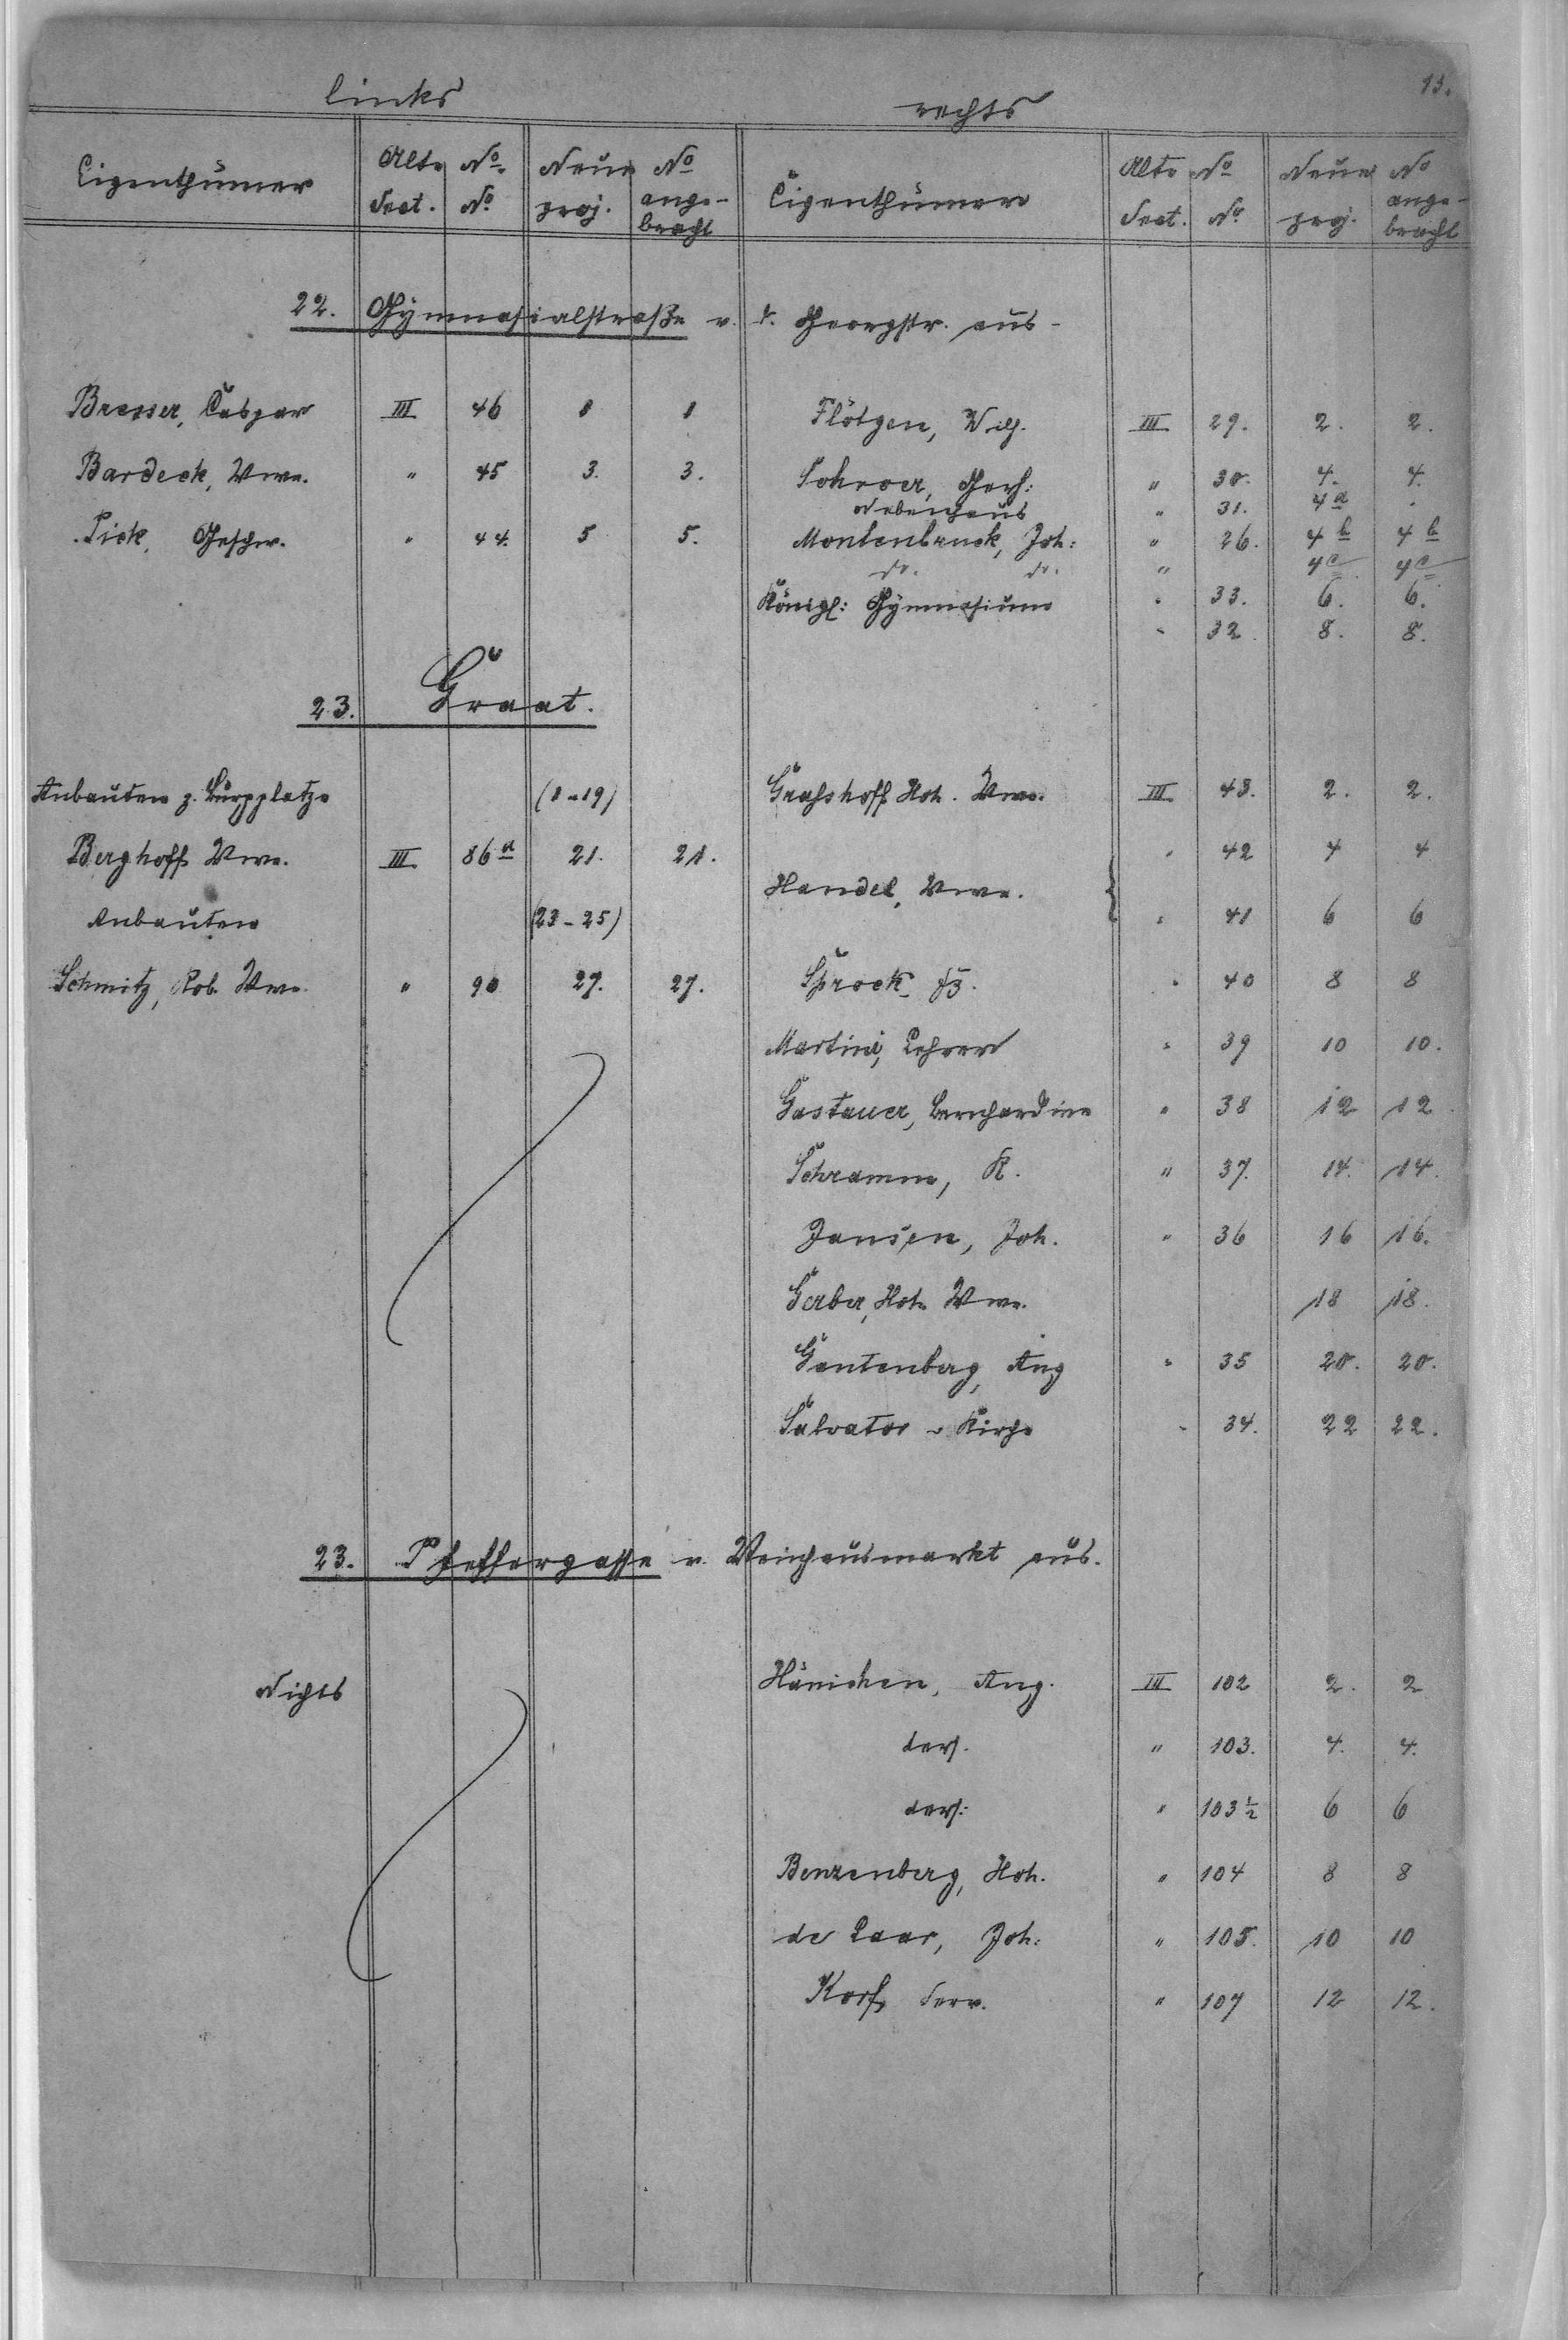 13.
links rechts
Eigenthümer Alte No. Neue No Eigenthümer Alte No Neue No
Sect. No. proj. ange-bracht Sect. No. proj. ange-bracht
22. Gymnasialstraße v. d. Georgstr. aus -
Bresser, Caspar III 46 1 1 Flötgen, Wilh. III 29. 2. 2.
Bardeck, Wwe. " 45 3. 3. Schroer, Gerh: " 30. 4. 4.
Nebenhaus " 31. 4a .
Pick, Geschw. " 44. 5 5. Montenbruck, Joh: " 26. 4b 4b
do. do. " 4c 4c
Königl: Gymnasium " 33. 6. 6.
" 32. 8. 8.
23. Graat.
Anbauten z. Burgplatze (1-19) Grashoff Hch. Wwe. III 43. 2. 2.
Berghoff Wwe. III 86a 21. 21. " 42 4 4
Handel, Wwe.
Anbauten (23-25) " 41 6 6
Schmitz, Rob. Wwe. " 90 27. 27. Sprock, Fz. " 40 8 8
Martini, Lehrer " 39 10 10.
Gastauer, Bernhardine " 38 12 12.
Schramm, K. " 37. 14. 14.
Jansen, Joh. " 36 16 16.
Gerber, Hch. Wwe. 18 18.
Gantenberg, Aug " 35 20. 20.
Salvator-Kirche " 34. 22 22.
23. Pfeffergasse v. Weinhausmarkt aus.
Nichts Hänichen, Aug. III 102 2. 2
ders. " 103. 4. 4.
ders: " 103½ 6 6
Benzenberg, Hch. " 104 8 8
de Laar, Joh: " 105. 10 10
Korf, Ferd. " 107 12 12.